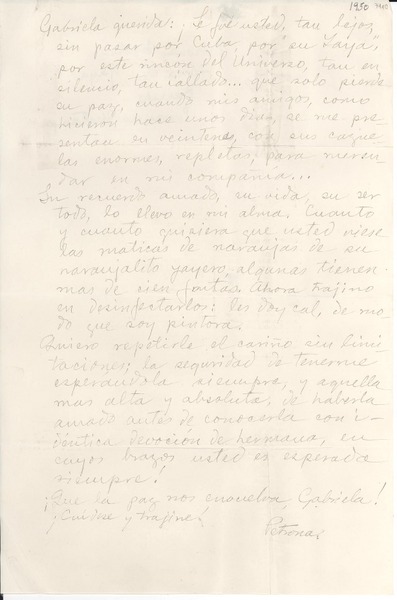 1950
Gabriela querida: Se fué usted, tan lejos,
sin pasar por Cuba, por "su Yaya",
por este rincón del Universo, tan en
silencio, tan callado... que solo pierde
su paz, cuando mis amigos, como
hicieron hace unos días, se me pre-
sentan en veintenas, con sus cazue
las enormes, repletas, para meren
dar en mi compañía...
Su recuerdo amado, su vida, su ser
todo, lo elevo en mi alma. Cuanto
y cuanto quisiera que usted viese
las maticas de naranjas de su
naranjalito yayero, algunas tienen
mas de cien frutas. Ahora trajino
en desinfectarlos: les doy cal, de mo
do que soy pintora.
Quiero repetirle el cariño sin limi
taciones, la seguridad de tenerme
esperándola siempre, y aquella
mas alta y absoluta, de haberla
amado antes de conocerla con i-
déntica devoción de hermana, en
cuyos brazos usted es esperada
siempre!
¡Que la paz nos envuelva, Gabriela!
¡Cuídese y trajine!
Petrona